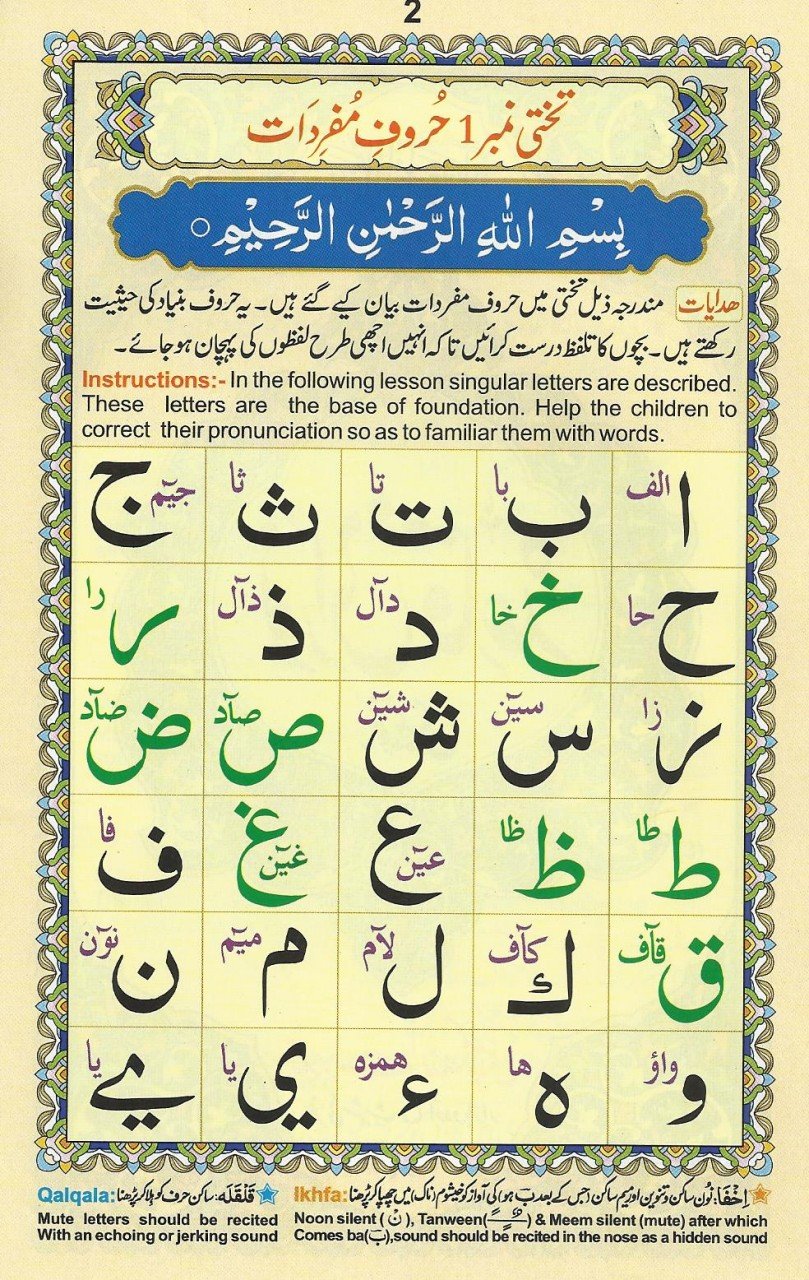 2
تختی نمبر 1 حُروف مُفرِدَات
بِسْمِ اللّٰهِ الرَّحْمٰنِ الرَّحِیْمِ ○
ھدایات مندرجہ ذیل تختی میں حروف مفردات بیان کیے گئے ہیں۔ یہ حروف بنیاد کی حیثیت
رکھتے ہیں۔ بچوں کا تلفظ درست کرائیں تاکہ انہیں اچھی طرح لفظوں کی پہچان ہو جائے۔
Instructions:- In the following lesson singular letters are described.
These letters are the base of foundation. Help the children to
correct their pronunciation so as to familiar them with words.
ا الف ب با ت تا ث ثا ج جیٓم
ح حا خ خا د دآل ذ ذآل ر را
ز زا س سیٓن ش شیٓن ص صآد ض ضآد
ط طا ظ ظا ع عیٓن غ غیٓن ف فا
ق قآف ك کآف ل لآم م میٓم ن نوٓن
و واؤ ہ ھا ء ھمزہ ي یا ے یا
اِخْفَا: نُون ساکن و تنوین اور میم ساکن (جس کے بعد بَ ہو) کی آواز کو خیشوم (ناک) میں چھپا کر پڑھنا Ikhfa:
Noon silent (نْ), Tanween(ـًـٍـٌ) & Meem silent (mute) after which
Comes ba(بَ),sound should be recited in the nose as a hidden sound
قَلْقَلَه: ساکن حرف کو ہلا کر پڑھنا Qalqala:
Mute letters should be recited
With an echoing or jerking sound